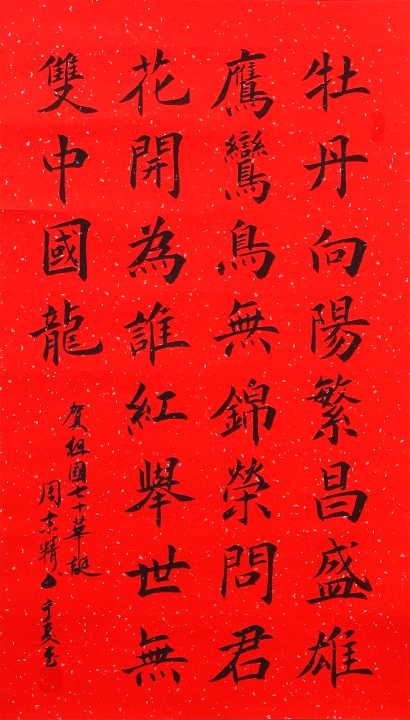 牡丹向陽繁昌盛雄
鷹鸞鳥無錦榮問君
花開為誰紅舉世無
雙中國龍
賀祖國七十華誕
周志精书于夏至